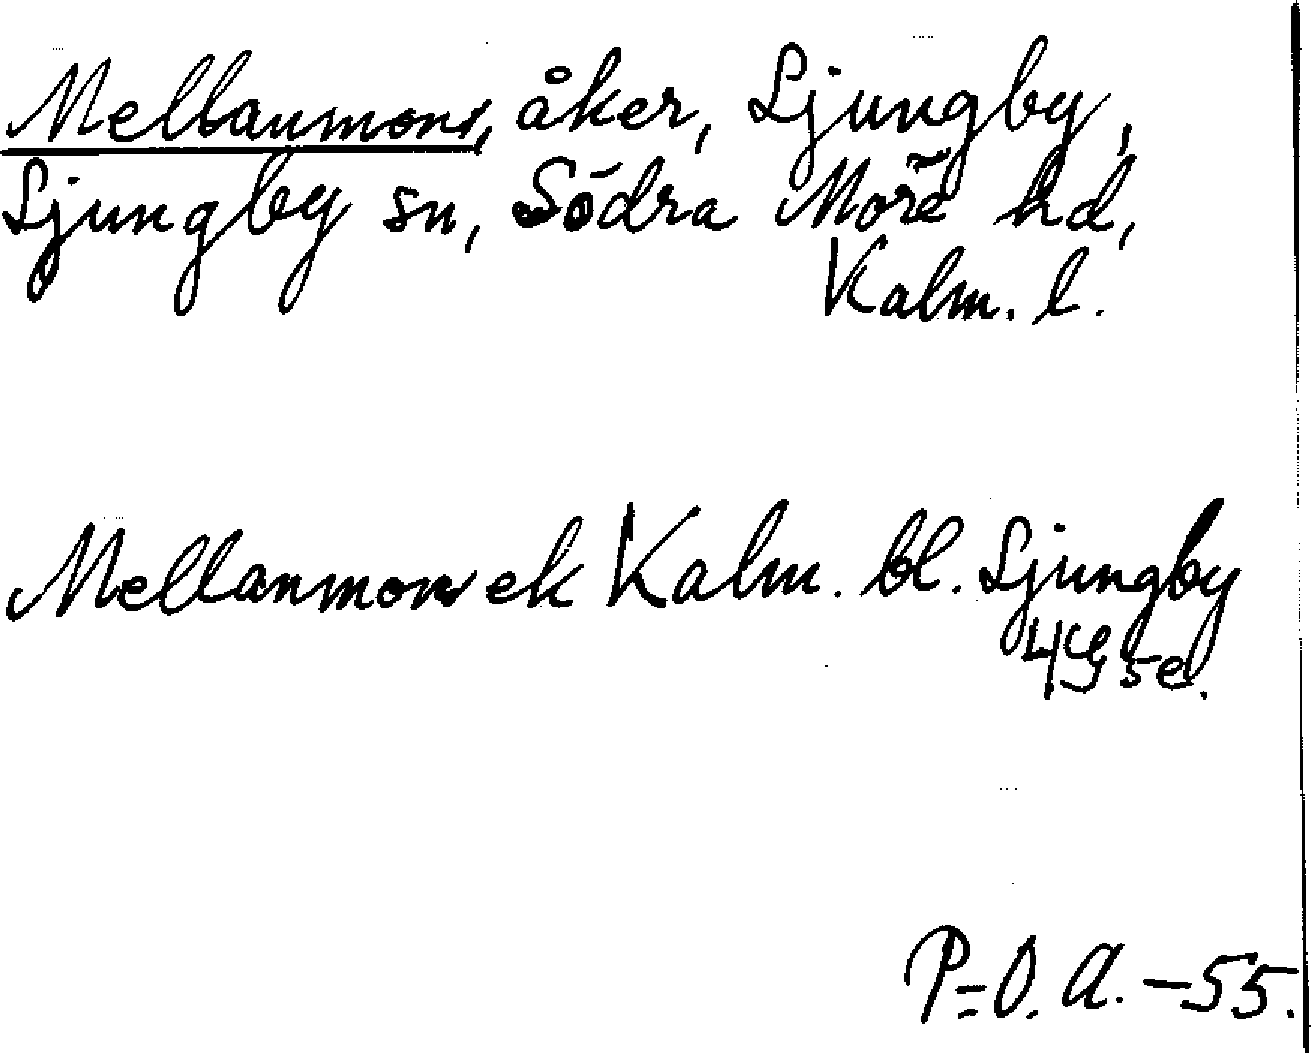 Mellanmon, åker, Ljungby,
Ljungby sn, Södra Möre hd,
Kalm. l.
Mellanmon ek Kalm. bl. Ljungby
4G5e.
P=O. A. -55.